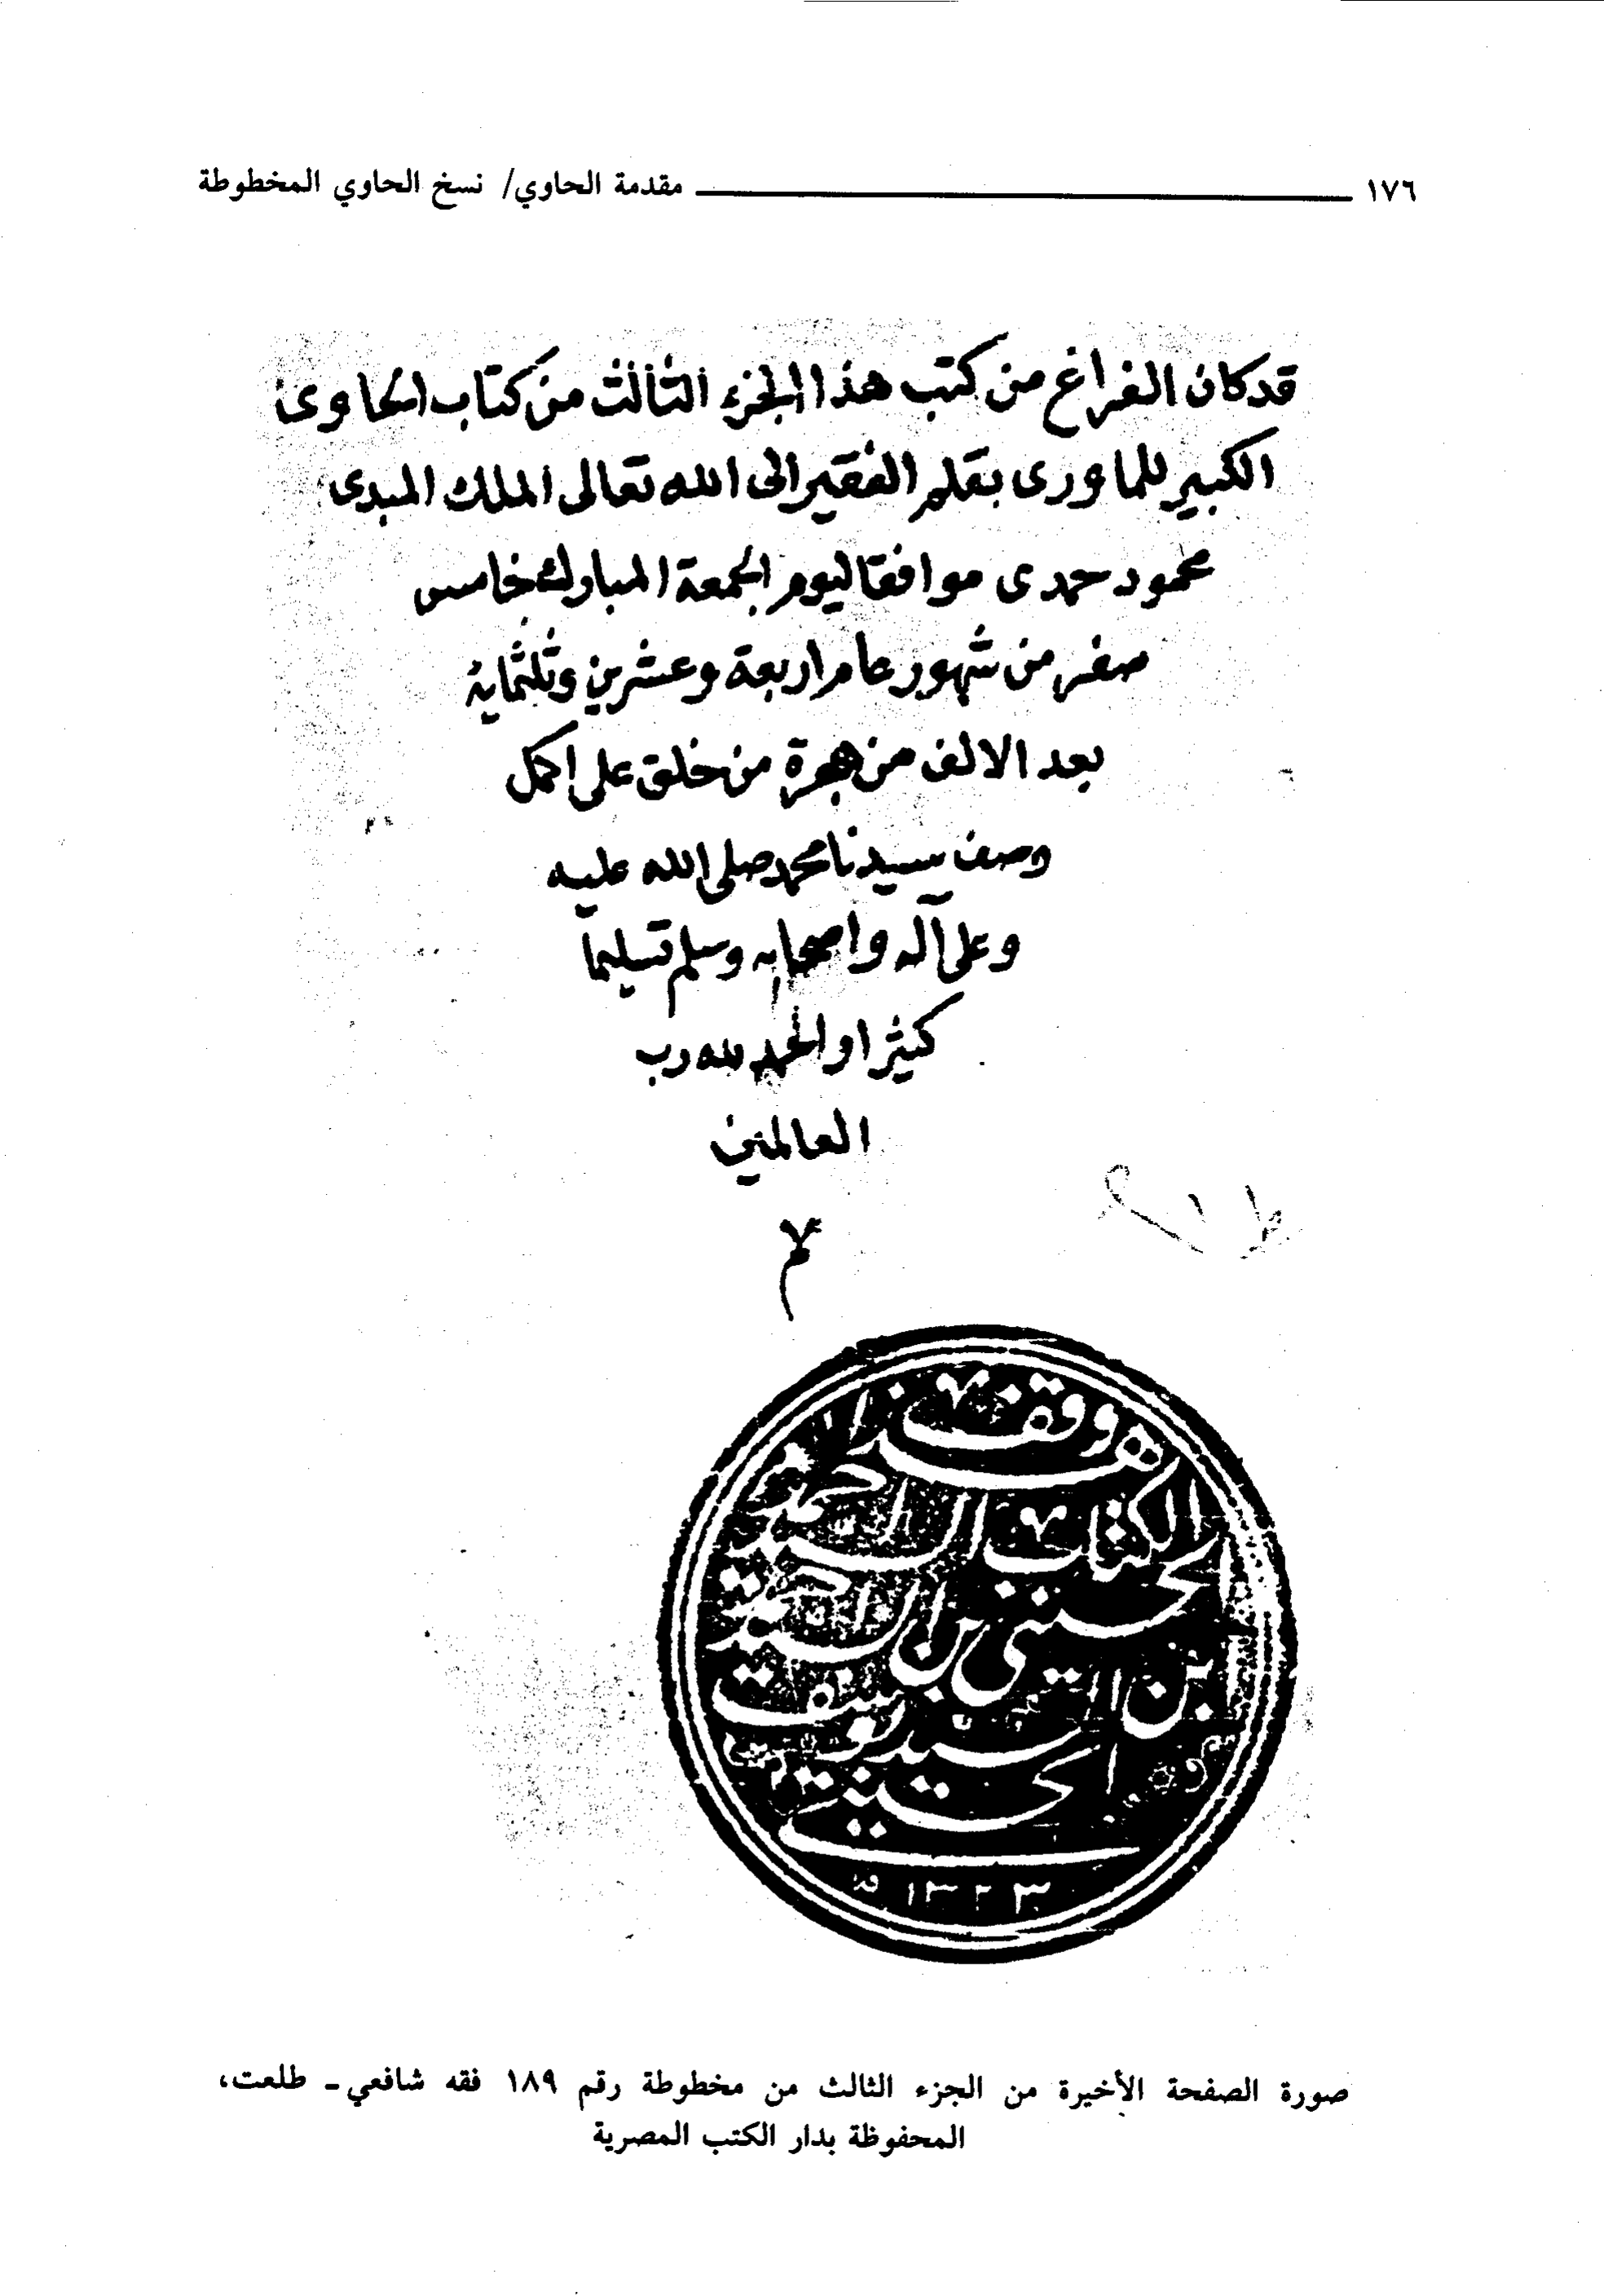 ١٧٦ مقدمة الحاوي/ نسخ الحاوي المخطوطة
قد كان الفراغ من كتب هذا الجزء الثالث من كتاب الحاوى
الكبير للماوردى بقلم الفقير الى الله تعالى الملك المبدى
محمود حمدى موافقا ليوم الجمعة المبارك خامس
صفر من شهور عام اربعة وعشرين وثلثماية
بعد الالف من هجرة من خلق على اكمل
وصف سيدنا محمد صلى الله عليه
وعلى آله واصحابه وسلم تسليما
كثيرا والحمد لله رب
العالمين
م
وقف هذا
الكتاب
الحسينى بن
بن السيد
الحسينى
١٣٢٣
صورة الصفحة الأخيرة من الجزء الثالث من مخطوطة رقم ١٨٩ فقه شافعي - طلعت،
المحفوظة بدار الكتب المصرية